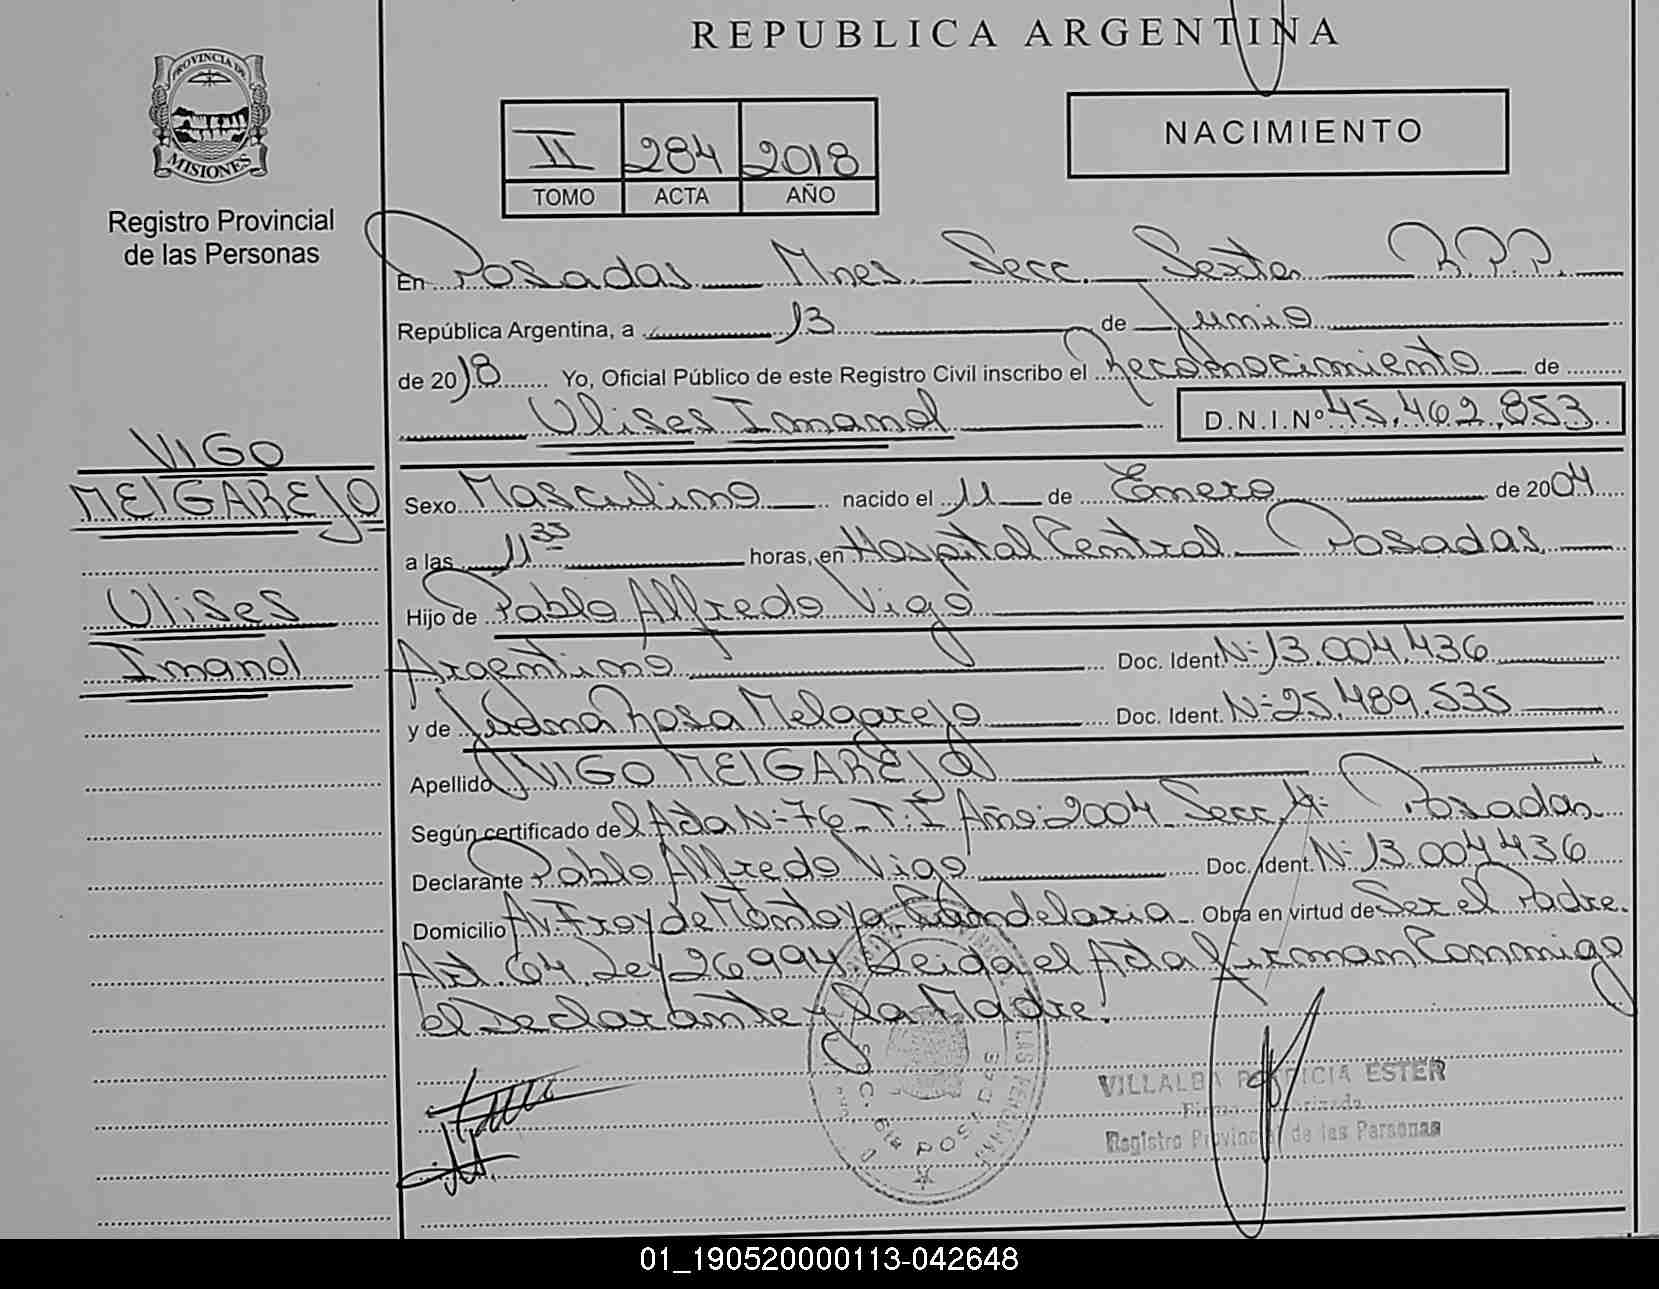 REPUBLICA ARGENTINA
PROVINCIA DE
MISIONES
Registro Provincial
de las Personas
II 284 2018
TOMO ACTA AÑO
NACIMIENTO
En Posadas Mnes. Secc. Sexta R.P.P.
República Argentina, a 13 de Junio
de 2018 Yo, Oficial Público de este Registro Civil inscribo el Reconocimiento de
Ulises Imanol D.N.I.Nº 45.462.853
VIGO
MElGAREJO
Ulises
Imanol
Sexo Masculino nacido el 11 de Enero de 2004
a las 11 35 horas, en Hospital Central Posadas
Hijo de Pablo Alfredo Vigo
Argentino Doc. Ident. Nº 13.004.436
y de Rosa Melgarejo Doc. Ident. Nº 25.489.535
Apellido VIGO MElGAREJO
Según certificado del Acta Nº 76 T. I Año: 2004 Secc. 4º Posadas
Declarante Pablo Alfredo Vigo Doc. Ident. Nº 13.004.436
Domicilio Av. Fray de Montoya Candelaria Obra en virtud de Ser el Padre.
Art. 64 Ley 26994. Leida el Acta firman Conmigo
el Declarante y la Madre.
VILLALBA PATRICIA ESTER
Firma Autorizada
Registro Provincial de las Personas
01_190520000113-042648